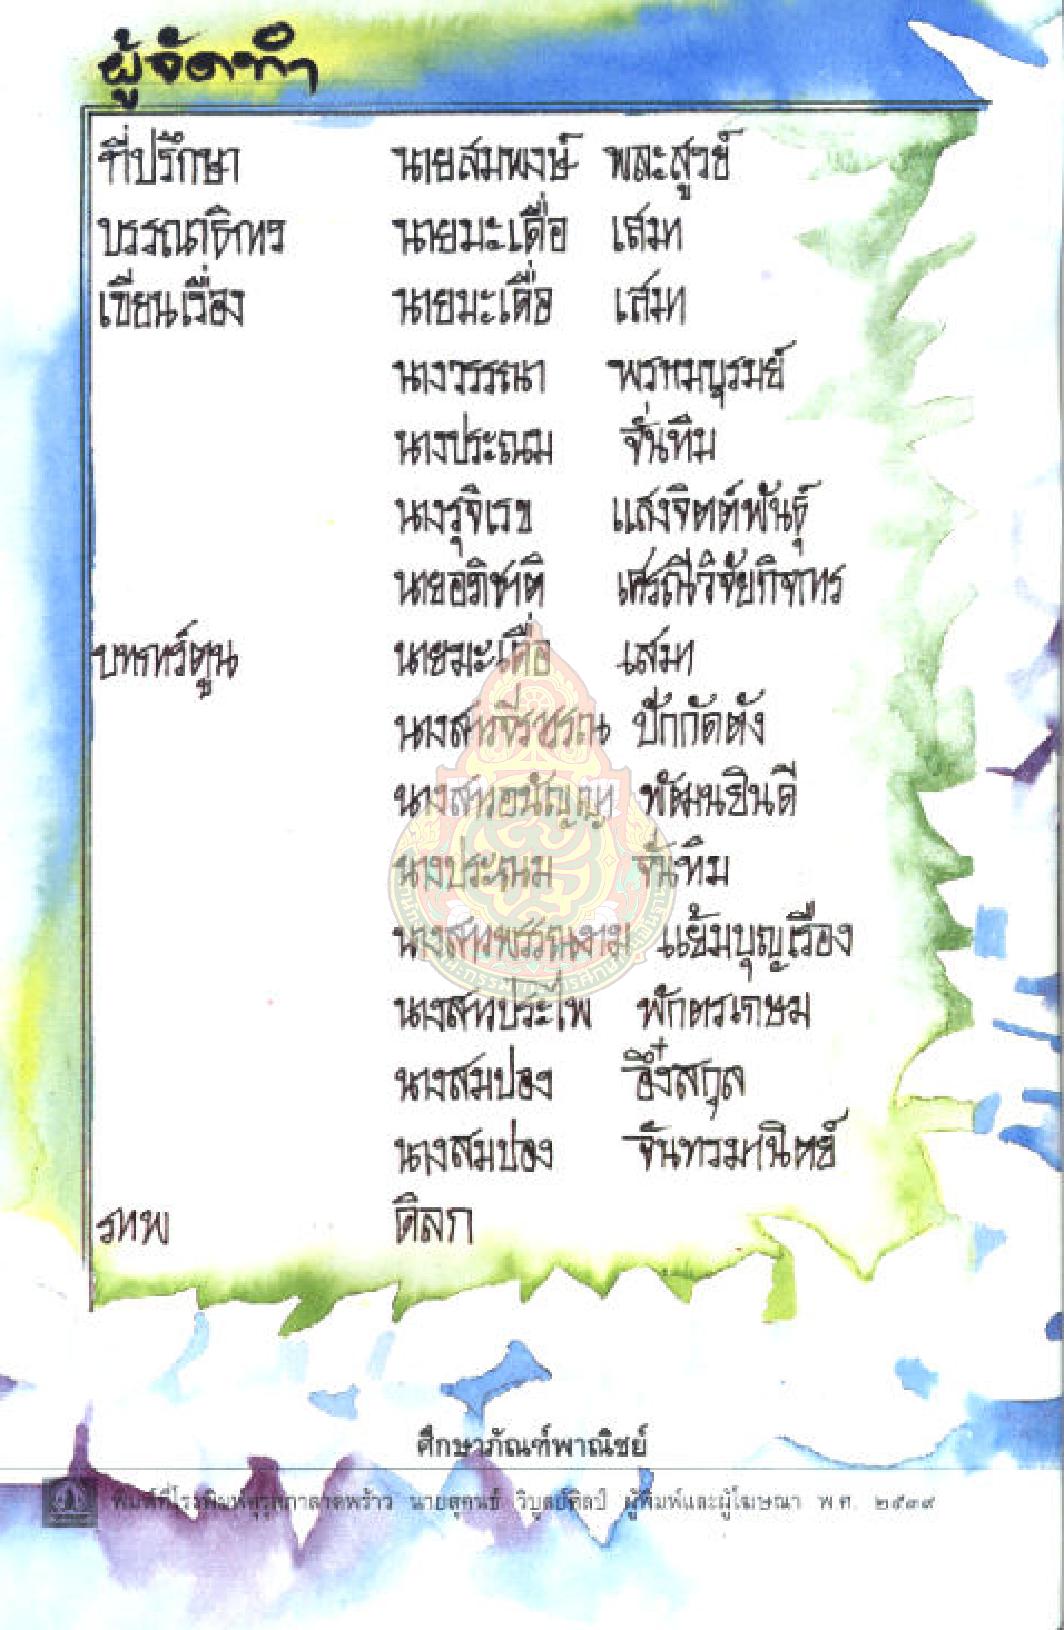 ผู้จัดทำ
ที่ปรึกษา นายสมพงษ์ พละสูรย์
บรรณาธิการ นายมะเดื่อ เสมา
เขียนเรื่อง นายมะเดื่อ เสมา
นางวรรณา พรหมบุรมย์
นางประณม จั่นทิม
นางรุจิเรข แสงจิตต์พันธุ์
นายอภิชาติ เศรณีวิจัยกิจการ
บทการ์ตูน นายมะเดื่อ เสมา
นางสาวจีรวรรณ ปักกัดตัง
นางสาวอนัญญา พัฒนยินดี
นางประณม จั่นทิม
นางสาวพรรณงาม แย้มบุญเรือง
นางสาวประไพ พักตรเกษม
นางสมปอง อึ๋งสกุล
นางสมปอง จันทรมานิตย์
ภาพ ดิลก
ศึกษาภัณฑ์พาณิชย์
พิมพ์ที่โรงพิมพ์คุรุสภาลาดพร้าว นายสุคนธ์ วิบูลย์ศิลป์ ผู้พิมพ์และผู้โฆษณา พ.ศ. ๒๕๓๙